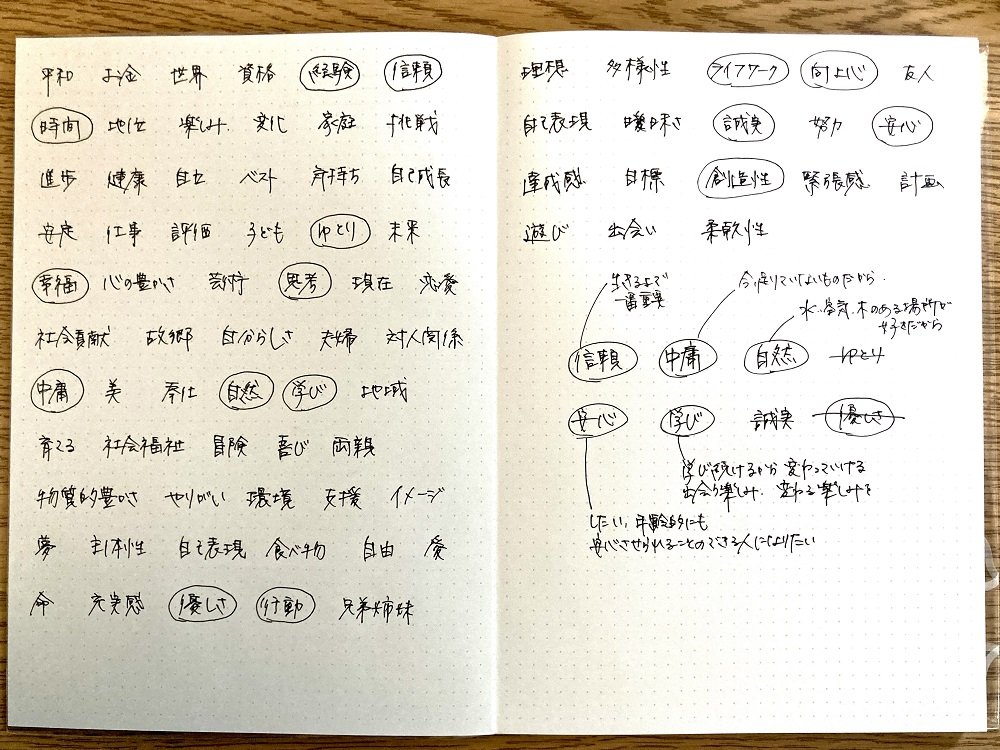 平和 お金 世界 資格 経験 信頼
時間 地位 楽しみ 文化 家庭 挑戦
進歩 健康 自立 ベスト 気持ち 自己成長
安定 仕事 評価 子ども ゆとり 未来
幸福 心の豊かさ 芸術 思考 現在 恋愛
社会貢献 故郷 自分らしさ 夫婦 対人関係
中庸 美 奉仕 自然 学び 地域
育てる 社会福祉 冒険 喜び 両親
物質的豊かさ やりがい 環境 支援 イメージ
夢 主体性 自己表現 食べ物 自由 愛
命 充実感 優しさ 行動 兄弟姉妹
理想 多様性 ライフワーク 向上心 友人
自己表現 曖昧さ 誠実 努力 安心
達成感 目標 創造性 緊張感 計画
遊び 出会い 柔軟性
生きる上で
一番重要
今足りていないものだから
水、空気、木のある場所が
好きだから
信頼 中庸 自然 ゆとり
安心 学び 誠実 優しさ
学び続けるから変わっていける
出会う楽しみ、変わる楽しみを
したい、年齢的にも
安心させられることのできる人になりたい